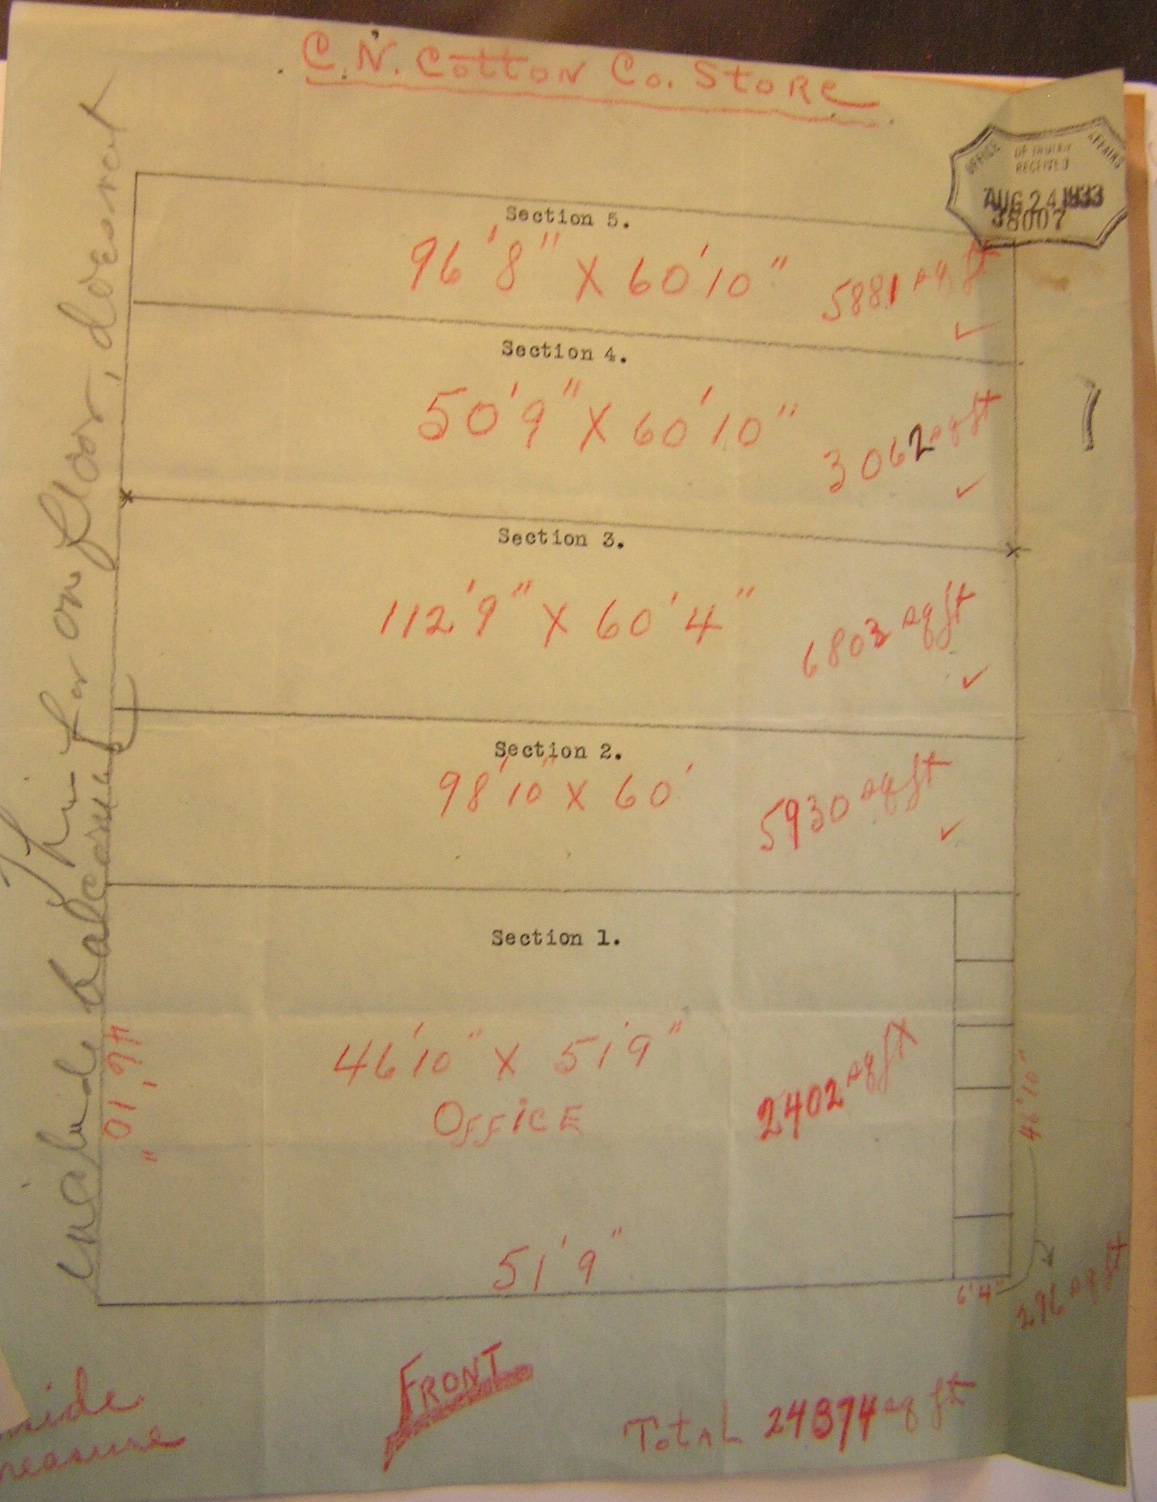 C.N. Cotton Co. Store
OFFICE OF INDIAN AFFAIRS
RECEIVED
AUG 24 1933
38007
Section 5.
96'8" X 60'10"
5881 sq ft
✓
Section 4.
50'9" X 60'10"
3062 sq ft
✓
Section 3.
112'9" X 60'4"
6803 sq ft
✓
Section 2.
98'10" X 60'
5930 sq ft
✓
Section 1.
46'10" X 51'9"
OFFICE
2402 sq ft
46'10"
46'10"
51'9"
6'4"
296 sq ft
FRONT
Total 24374 sq ft
This for one floor, does not
include balcony
measure